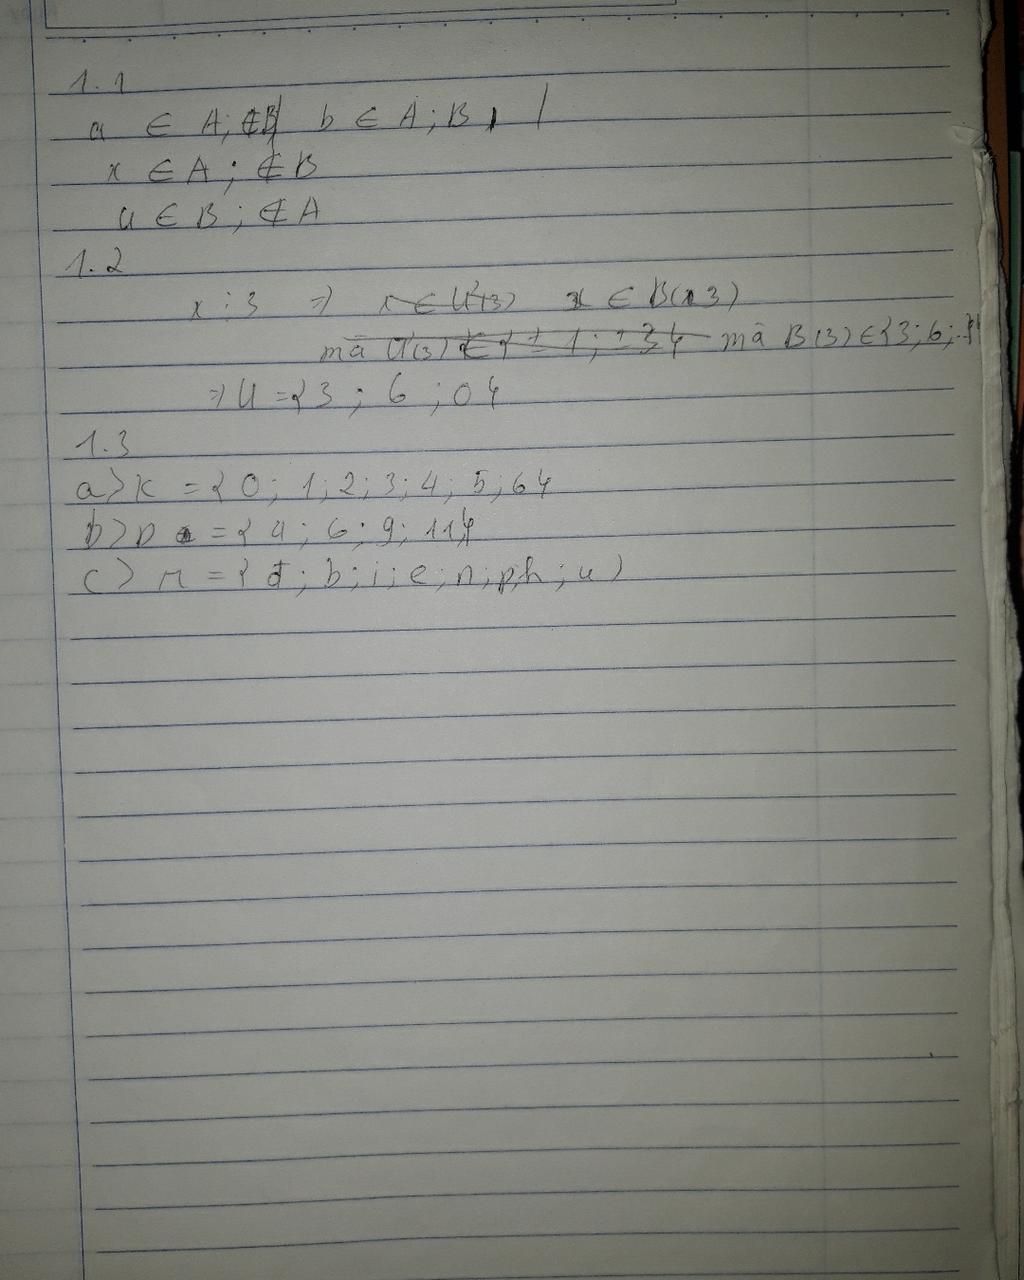 1.1
a ∈ A; ∉B b ∈ A; B,
x ∈ A; ∉ B
u ∈ B; ∉ A
1.2
x ⋮ 3 ⇒ x ∈ Ư(3) x ∈ B(3)
mà Ư(3) ∈ { ± 1; ±3} mà B(3) ∈ {3; 6;..}
⇒ U = {3; 6; 0}
1.3
a> K = { 0; 1; 2; 3; 4; 5; 6}
b> D = { 4; 6; 9; 11}
c> M = { đ; b; i; e; n; p; h; u }